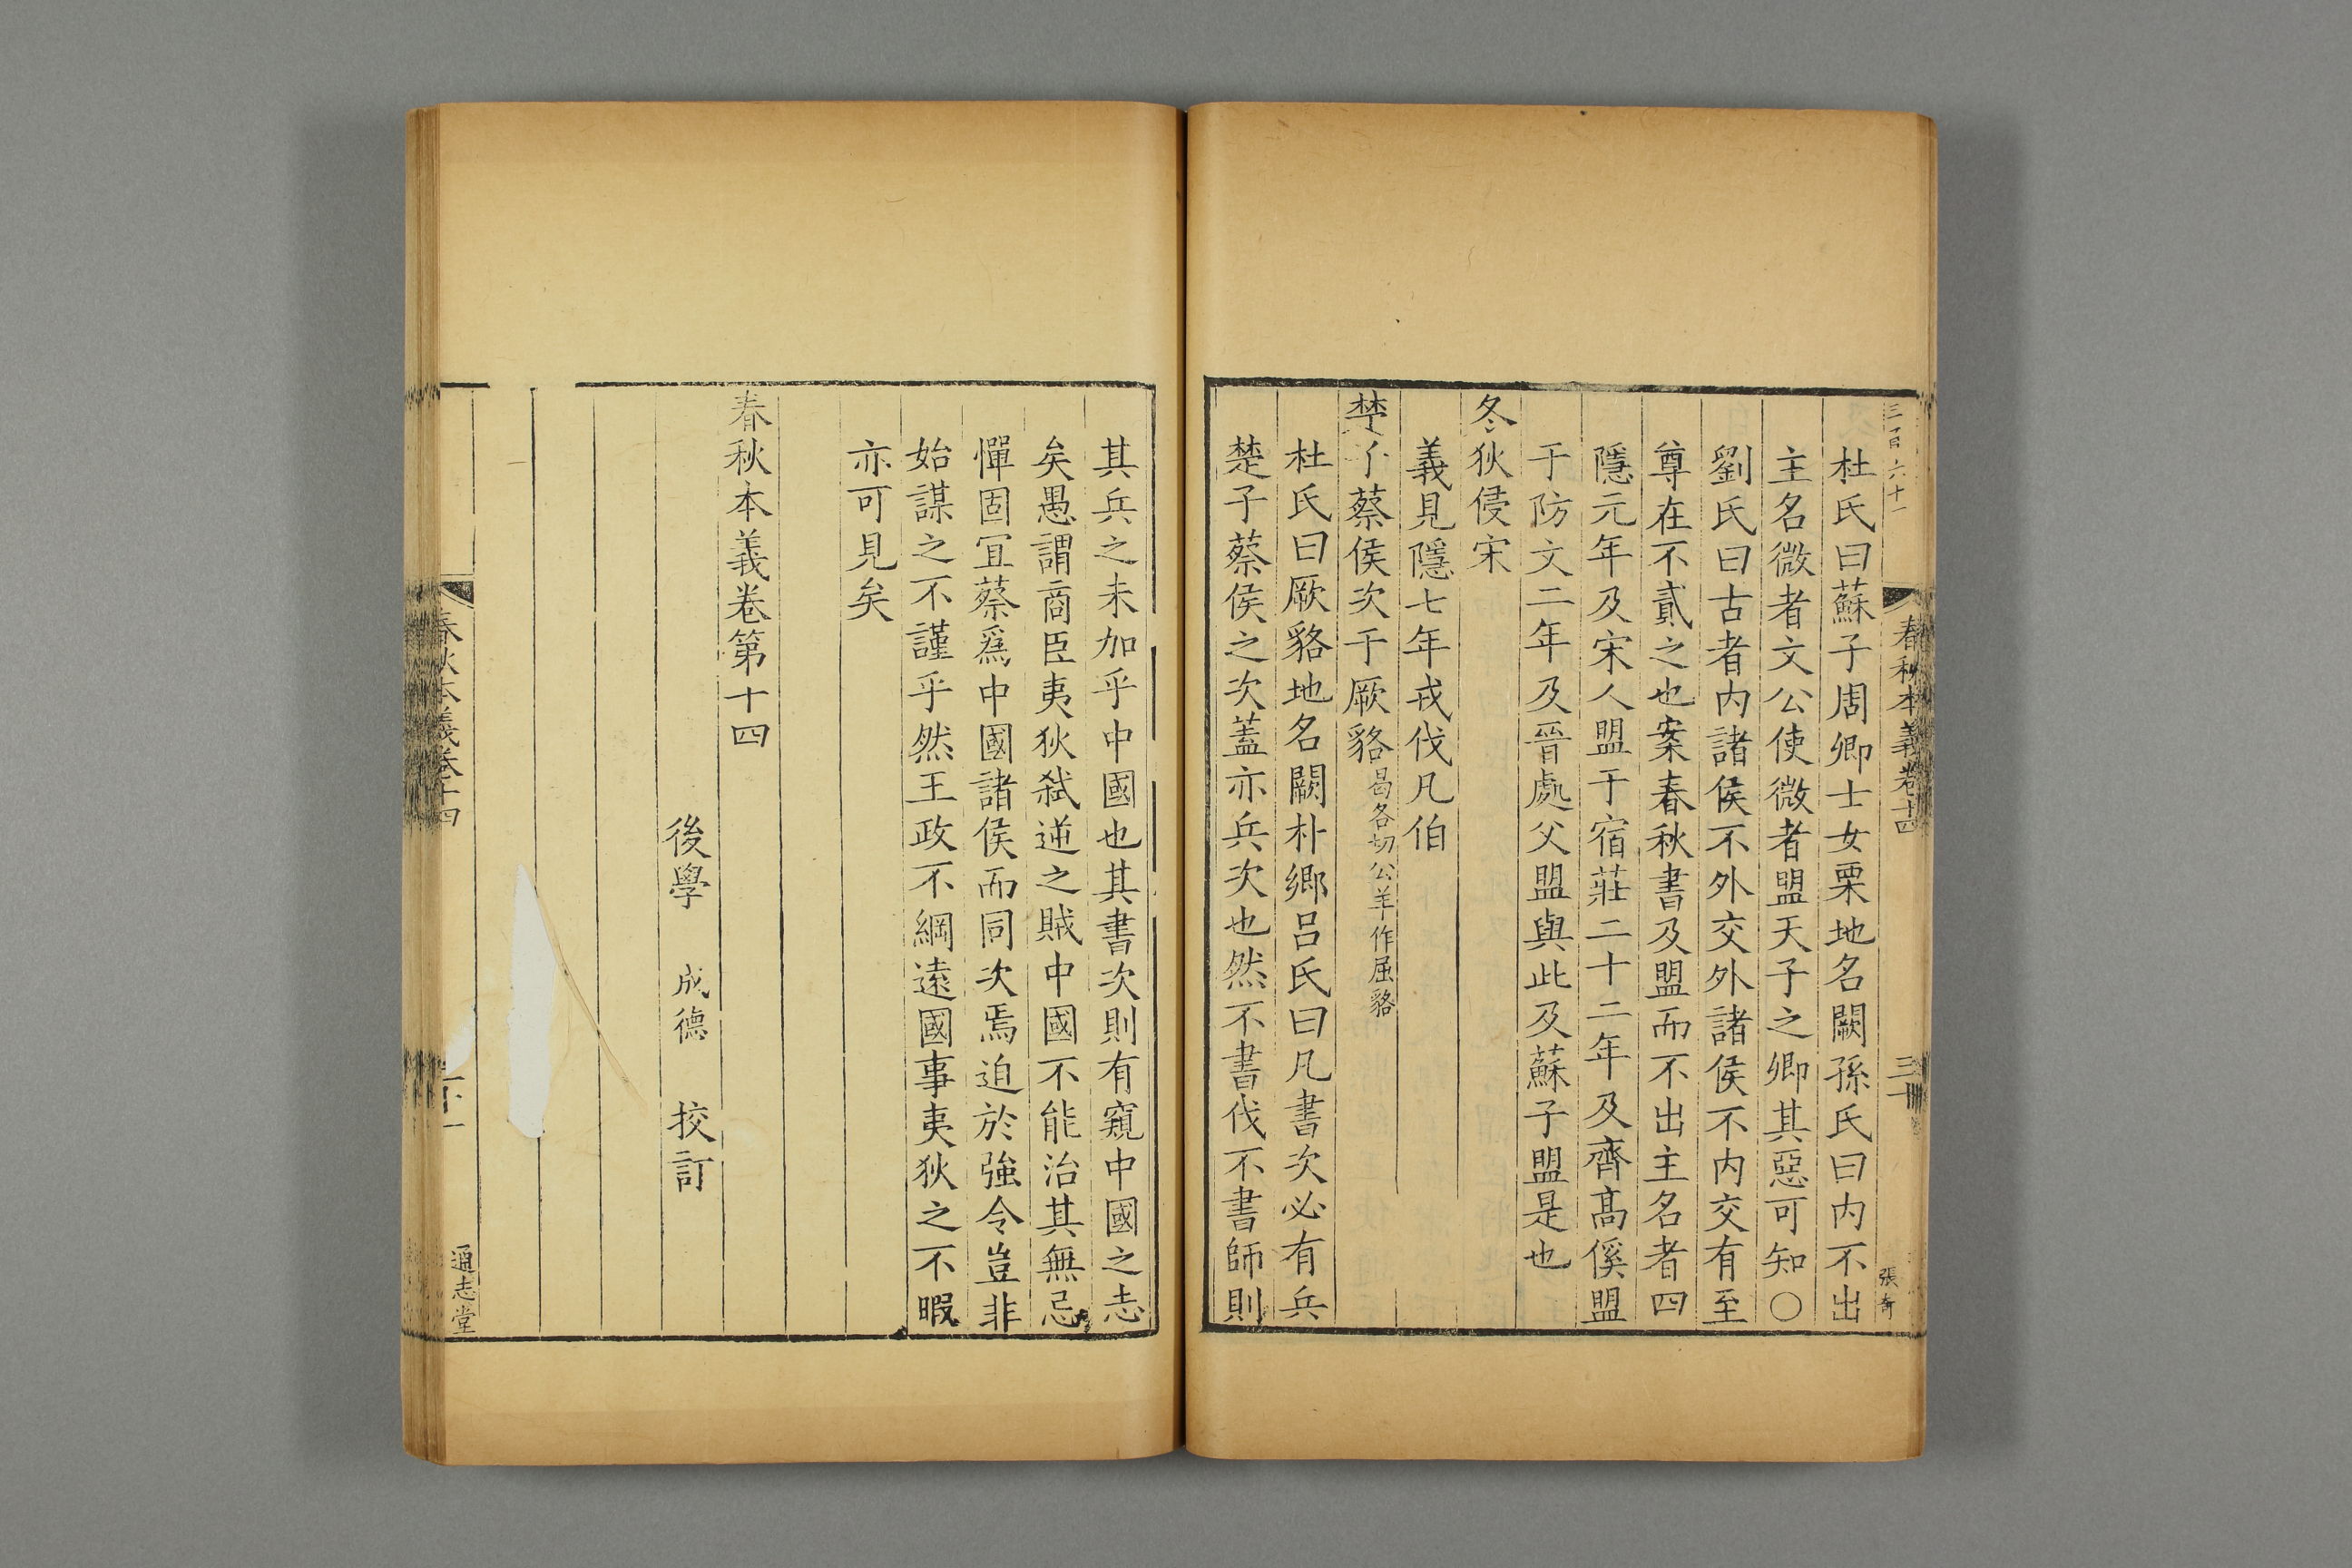 三百六十一
春秋本義卷十四
三十
張奇
杜氏曰蘇子周卿士女栗地名闕孫氏曰内不出
主名微者文公使微者盟天子之卿其惡可知○
劉氏曰古者内諸侯不外交外諸侯不内交有至
尊在不貳之也案春秋書及盟而不出主名者四
隱元年及宋人盟于宿莊二十二年及齊髙傒盟
于防文二年及晉處父盟與此及蘇子盟是也
冬狄侵宋
義見隱七年戎伐凡伯
楚子蔡侯次于厥貉曷各切公羊作屈貉
杜氏曰厥貉地名闕朴鄉吕氏曰凡書次必有兵
楚子蔡侯之次蓋亦兵次也然不書伐不書師則
其兵之未加乎中國也其書次則有窺中國之志
矣愚謂商臣夷狄弑逆之賊中國不能治其無忌
憚固宜蔡爲中國諸侯而同次焉迫於強令豈非
始謀之不謹乎然王政不綱遠國事夷狄之不暇
亦可見矣
春秋本義卷第十四
後學 成德 校訂
春秋本義卷十四
通志堂